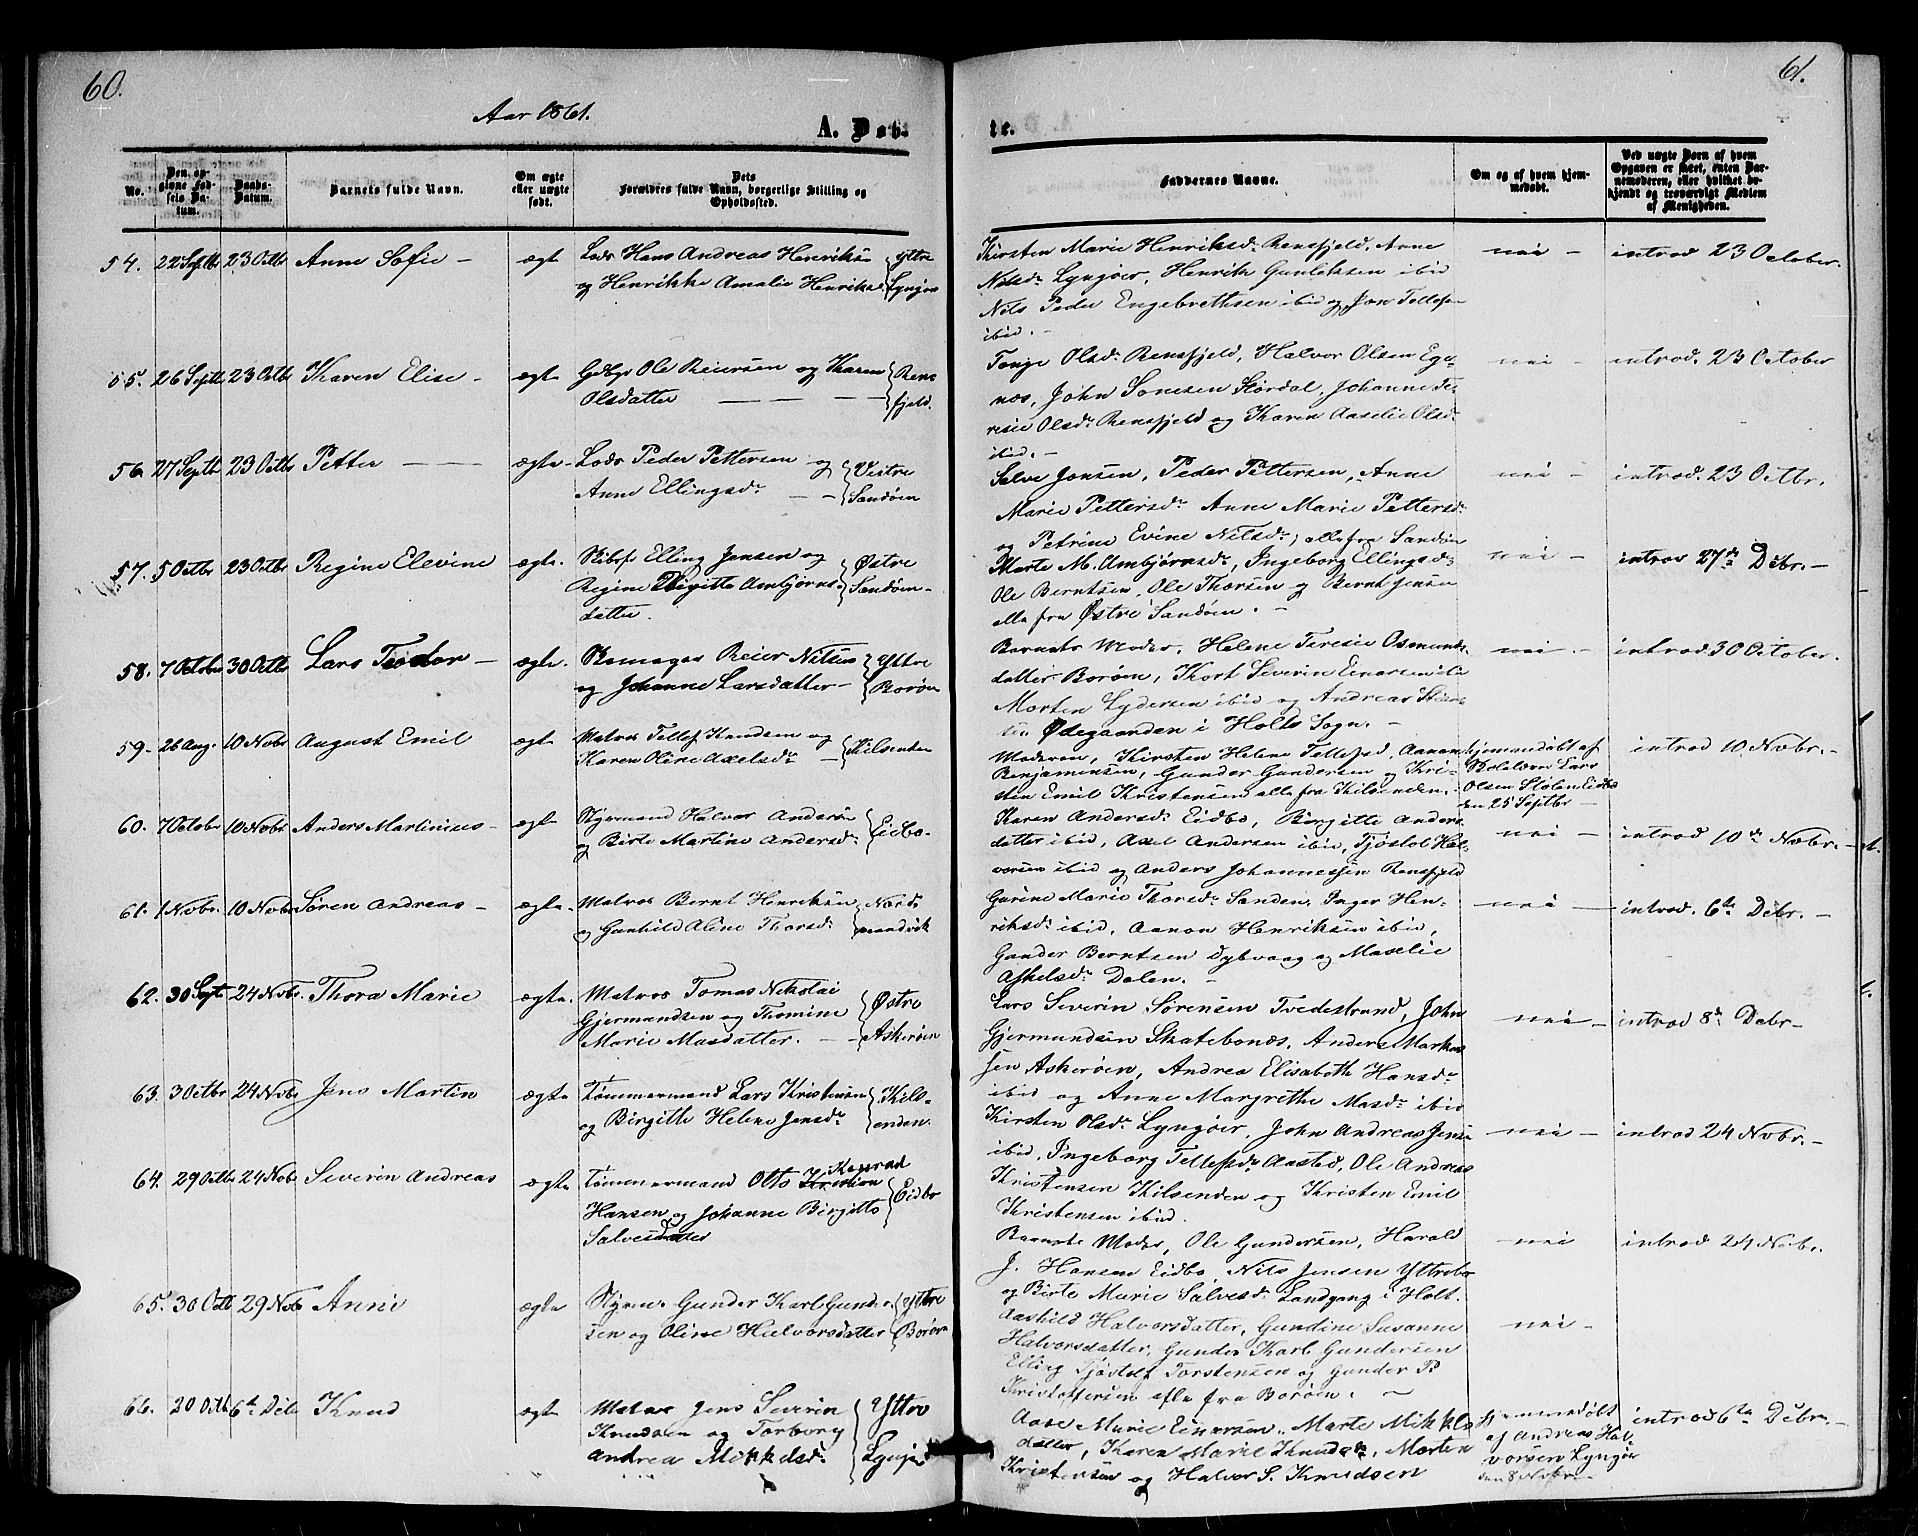 60.
61.
Aar 1861.
A. Døb-
te.
No.
Den op-
givne Fød-
sels Da-
tum.
Daabs-
Datum.
Barnets fulde Navn.
Om ægte
eller uægte
født.
Dets
Forældres fulde Navn, borgerlige Stilling og
Opholdssted.
Faddernes Navne.
Om og af hvem hjem-
medøbt.
Ved uægte Børn af hvem
Opgaven er skeet, enten Bar-
nemoderen, eller hvilket be-
kjendt og troværdigt Medlem
af Menigheden.
54. 22 Septbr 23 Octbr Anne Sofie — ægte
Lods Hans Andreas Henriksn Yttre
og Henrikke Amalie Henriksdr Lyngøer
Kirsten Marie Henriksdr Rensfjeld, Anne
Nilsdr Lyngøer, Henrik Gunleksen ibid
Nils Peder Engebrethsen ibid og Jon Tellefsen
ibid. —
nei —
introd 23 October.
55. 26 Septbr 23 Octbr Karen Elise — ægte
Gdbgr Ole Reiersen og Karen Rens
Olsdatter — — — fjeld.
Tonje Olsdr Rensfjeld, Halvor Olsen Ege-
næs, John Sonesen Stördal, Johanne Te-
resie Olsdr Rensfjeld og Karen Aaselie Olsdr
ibid. —
nei —
introd. 23 October
56. 27 Septbr 23 Octbr Petter — — ægte
Lods Peder Pettersen og Vestre
Anne Ellingsdr — — Sandøen
Salve Jensen, Peder Pettersen, Anne
Marie Pettersdr Anne Marie Pettersdr
og Petrine Evine Nilsdr, alle fra Sandøen
nei —
introd. 23 Octbr.
57. 5 Octbr 23 Octbr Regine Elevine ægte.
Skibsf Elling Jensen og Østre
Regine Birgitte Ambjørns- Sandøen
datter.
Marte M. Ambjørnsdr, Ingeborg Ellingsdr
Ole Berntsen, Ole Thorsen og Bernt Jensen
alle fra Østre Sandøen. —
nei —
introd 27de Debr. —
58. 7 Octbr 30 Octbr Lars Teodor — ægte.
Reier Nilsen Yttre
og Johanne Larsdatter — Borøen
Barnets Moder, Helene Teresie Osmunds-
datter Borøen, Kort Severin Einarsen ibid
Morten Lydersen ibid og Andreas
Ødegaarden i Holts Sogn. —
nei. —
introd 30 October.
59. 26 Aug. 10 Nobr August Emil ægte
Matros Tellef Knudsen og Kilsenden
Karen Oline Axelsdr —
Moderen, Kirsten Helene Tellefsd, Aanon
Benjaminsen, Gunder Gundersen og Kri-
sten Emil Kristensen alle fra Kilsenden. —
hjemmedøbt af
Skolelærer Lars
Olsen Stølen Eidbo
den 25 Septbr —
introd 10 Nobr. —
60. 7 Octobr 10 Nobr Anders Martinius — ægte
Styrmand Halvor Andersn Eidbo —
og Berte Martine Andersdr
Karen Andersdr Eidbo, Birgitte Anders
datter ibid, Axel Andersen ibid, Tjöstol Hal-
vorsen ibid og Anders Johannessen Rensfjeld
nei —
introd 10de Nobr. —
61. 1 Nobr. 10 Nobr Søren Andreas — ægte.
Matros Bernt Henriksen Nords
og Gunhild Aline Thorsdr mandvik
Gurine Marie Thorsdr Sanden, Inger Hen-
riksdr ibid, Aanon Henriksen ibid,
Gunder Berntsen Dybvaag og Maselie
Askelsdr Dalen. —
nei —
introd. 6te Debr. —
62. 30 Sept 24 Nobr. Thora Marie ægte.
Matros Tomas Nikolai Østre
Gjermundsen og Thomine Askerøen
Marie Masdatter. — —
Lars Severin Sørensen Tvedestrand, John
Gjermundsen Skatebonæs, Anders Markus
sen Askerøen, Andrea Elisabeth Hansdr
ibid og Anne Margrethe Masdr ibid
nei —
introd 8de Debr —
63. 3 Octbr 24 Nobr Jens Martin ægte
Tømmermand Lars Kristensen Kils-
og Birgitte Helene Jensdr enden.
Kirsten Olsdr Lyngøer, John Andreas Jensn
ibid, Ingeborg Tellefsdr Aasted, Ole Andreas
Kristensen Kilsenden og Kristen Emil
Kristensen ibid.
nei —
introd 24 Nobr. —
64. 29 Octbr 24 Nobr Severin Andreas ægte
Tømmermand Otto Kristian Konrad
Hansen og Johanne Birgitte Eidbo
Salvesdatter
Barnets Moder, Ole Gundersen, Harald
J. Hansen Eidbo, Nils Jensen Yttrebø
og Birte Marie Salvesdr Landgang i Holt.
nei
introd 24 Nobr.
65. 30 Octb 29 Nob Anne ægte
Styrm. Gunder Karl Gunder- Yttre
sen og Oline Halvorsdatter Borøen
Aashild Halvorsdatter, Gundine Susanne
Halvorsdatter, Gunder Karl Gundersen
Elling Tjöstolf Torstensen og Gunder P.
Kristoffersen alle fra Borøen. —
nei —
66. 20 Octb 6te Debr Knud ægte
Matros Jens Severin Yttre
Knudsen og Torborg Lyngør
Andrea Mikkelsdr
Aase Marie Einersen, Marte Mikkels
datter, Karen Marie Knudsdr, Morten
Kristensen og Halvor S. Knudsen
hjemmedøbt
af Andreas Hal-
vorsen Lyngör
den 8 Nobr. —
introd 6te Debr. —